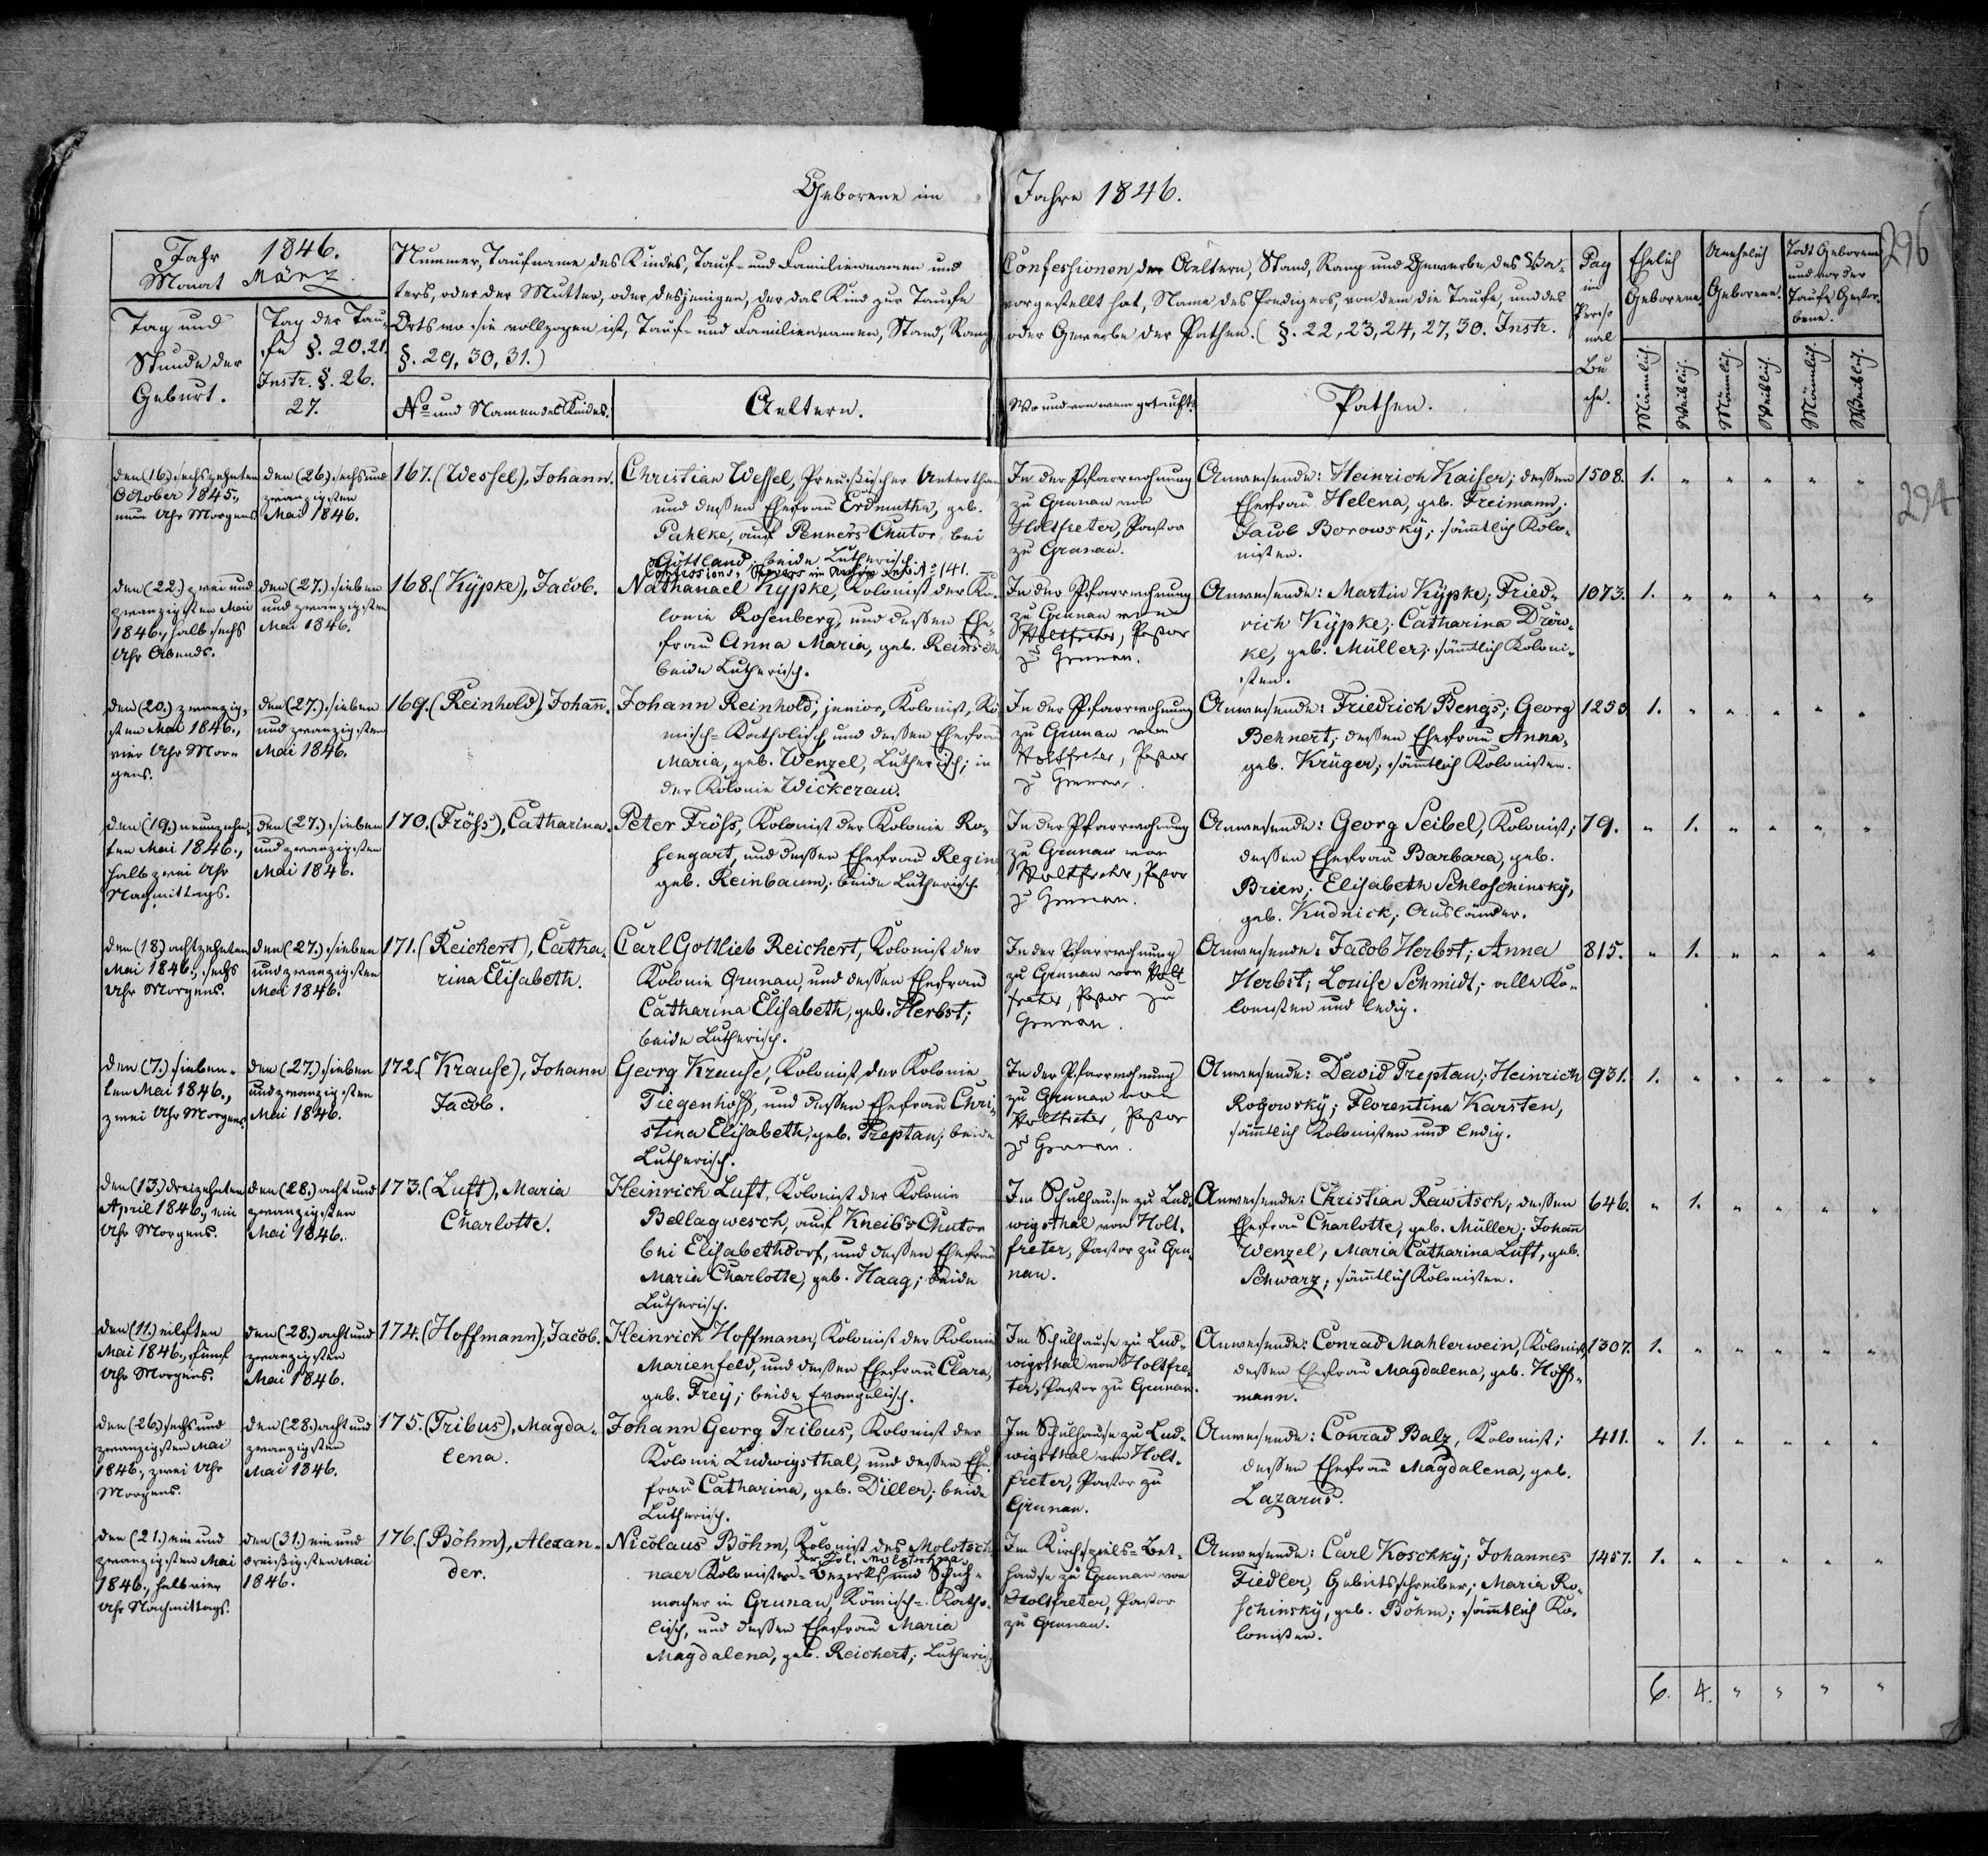 Geborene im Jahre 1846.
296
294
Jahr 1846.
Monat März.
Tag und
Stunde der
Geburt.
Tag der Tau-
fe §. 20.21.
Instr. §. 26.
27.
Nummer, Taufname des Kindes, Tauf- und Familiennamen und
ters, oder der Mutter, oder desjenigen, der das Kind zur Taufe
Orts wo sie vollzogen ist, Tauf- und Familiennamen, Stand, Rang
§. 29, 30, 31.)
No und Namen des Kindes.
Aeltern.
Confessionen der Aeltern, Stand, Rang und Gewerbe des Va-
vorgestellt hat, Name des Predigers, von dem die Taufe, und des
oder Gewerbe der Pathen. (§. 22, 23, 24, 27, 30. Instr.
Wo und von wem getauft.
Pathen.
Pag
im
Perso
nal
Bu
che.
Ehelich
Geborene.
Unehelich
Geborene.
Todt Geborene
und vor der
Taufe Gestor-
bene.
Männlich.
Weiblich.
Männlich.
Weiblich.
Männlich.
Weiblich.
den (16.) sechszehnten
October 1845.,
neun Uhr Morgens
den (26.) sechs und
zwanzigsten
Mai 1846.
167. (Wessel), Johann.
Christian Wessel, Preußischer Unterthan
und dessen Ehefrau Erdmutha, geb.
Pahlke, auf Penners Chutor, bei
Göttland; beide Lutherisch.
Confessions-Revers im Archiv sub. No 141.
In der Pfarrwohnung
zu Grunau von
Holtfreter, Pastor
zu Grunau.
Anwesende: Heinrich Kaiser; dessen
Ehefrau Helena, geb. Freimann;
Jacob Borowsky; sämmtlich Kolo-
nisten.
1508. 1. " " " " "
den (22.) zwei und
zwanzigsten Mai
1846., halb sechs
Uhr Abends.
den (27.) sieben
und zwanzigsten
Mai 1846.
168. (Kÿpke), Jacob.
Nathanael Kÿpke, Kolonist der Ko-
lonie Rosenberg, und dessen Ehe-
frau Anna Maria, geb. Reinsch
beide Lutherisch.
In der Pfarrwohnung
zu Grunau von
Holtfreter, Pastor
zu Grunau.
Anwesende: Martin Kÿpke; Fried-
rich Kÿpke; Catharina Dröw-
ke, geb. Müller; sämtlich Koloni-
sten.
1073. 1. " " " " "
den (20.) zwanzig-
sten Mai 1846.,
vier Uhr Mor-
gens.
den (27.) sieben
und zwanzigsten
Mai 1846.
169. (Reinhold), Johann.
Johann Reinhold, junior, Kolonist, Rö-
misch-Katholisch, und dessen Ehefrau
Maria, geb. Wenzel, Lutherisch; in
der Kolonie Wickerau.
In der Pfarrwohnung
zu Grunau von
Holtfreter, Pastor
zu Grunau.
Anwesende: Friedrich Bengs; Georg
Behnert; dessen Ehefrau Anna,
geb. Krüger; sämmtlich Kolonisten.
1253. 1. " " " " "
den (19.) neunzehn-
ten Mai 1846.,
halb zwei Uhr
Nachmittags.
den (27.) sieben
und zwanzigsten
Mai 1846.
170. (Fröss), Catharina.
Peter Fröss, Kolonist der Kolonie Ro-
sengart, und dessen Ehefrau Regin
geb. Reinbaum; beide Lutherisch.
In der Pfarrwohnung
zu Grunau von
Holtfreter, Pastor
zu Grunau.
Anwesende: Georg Seibel, Kolonist;
dessen Ehefrau Barbara, geb.
Brien; Elisabeth Schloschinskÿ,
geb. Kudnick, Ausländer.
79. " 1. " " " "
den (18.) achtzehnten
Mai 1846., sechs
Uhr Morgens.
den (27.) sieben
und zwanzigsten
Mai 1846.
171. (Reichert), Catha-
rina Elisabeth.
Carl Gottlieb Reichert, Kolonist der
Kolonie Grunau, und dessen Ehefrau
Catharina Elisabeth, geb. Herbst;
beide Lutherisch.
In der Pfarrwohnung
zu Grunau von Holt
freter, Pastor zu
Grunau.
Anwesende: Jacob Herbst; Anna
Herbst; Louise Schmidt; alle Ko-
lonisten und ledig.
815. " 1. " " " "
den (7.) sieben-
ten Mai 1846.,
zwei Uhr Morgens.
den (27.) sieben
und zwanzigsten
Mai 1846.
172. (Krause), Johann
Jacob.
Georg Krause, Kolonist der Kolonie
Tiegenhoff, und dessen Ehefrau Chri-
stina Elisabeth, geb. Treptau; beide
Lutherisch.
In der Pfarrwohnung
zu Grunau von
Holtfreter, Pastor
zu Grunau.
Anwesende: David Treptau; Heinrich
Rogowskÿ; Florentina Karsten,
sämmtlich Kolonisten und ledig.
931. 1. " " " " "
den (13.) dreizehnten
April 1846., ein
Uhr Morgens.
den (28.) acht und
zwanzigsten
Mai 1846.
173. (Luft), Maria
Charlotte.
Heinrich Luft, Kolonist der Kolonie
Bellagwesch, auf Kneib's Chutor
bei Elisabethdorf, und dessen Ehefrau
Maria Charlotte, geb. Haag; beide
Lutherisch.
Im Schulhause zu Lud-
wigsthal von Holt-
freter, Pastor zu Gru-
nau.
Anwesende: Christian Rawitsch; dessen
Ehefrau Charlotte, geb. Müller; Johann
Wenzel; Maria Catharina Luft, geb.
Schwarz; sämtlich Kolonisten.
646. " 1. " " " "
den (11.) eilften
Mai 1846., fünf
Uhr Morgens.
den (28.) acht und
zwanzigsten
Mai 1846.
174. (Hoffmann), Jacob.
Heinrich Hoffmann, Kolonist der Kolonie
Marienfeld, und dessen Ehefrau Clara,
geb. Freÿ; beide Evangelisch.
Im Schulhause zu Lud-
wigsthal von Holtfre-
ter, Pastor zu Grunau.
Anwesende: Conrad Mahlerwein, Kolonist;
dessen Ehefrau Magdalena, geb. Hoff-
mann.
1307. 1. " " " " "
den (26.) sechs und
zwanzigsten Mai
1846., zwei Uhr
Morgens.
den (28.) acht und
zwanzigsten
Mai 1846.
175. (Tribus), Magda-
lena.
Johann Georg Tribus, Kolonist der
Kolonie Ludwigsthal, und dessen Ehe-
frau Catharina, geb. Diller; beide
Lutherisch.
Im Schulhause zu Lud-
wigsthal von Holt-
freter, Pastor zu
Grunau.
Anwesende: Conrad Balz, Kolonist;
dessen Ehefrau Magdalena, geb.
Lazarus.
411. " 1. " " " "
den (21.) ein und
zwanzigsten Mai
1846., halb vier
Uhr Nachmittags.
den (31.) ein und
dreißigsten Mai
1846.
176. (Böhm), Alexan-
der.
Nicolaus Böhm, Kolonist des Molotsch-
der Kol. Molotschna
naer Kolonisten-Bezirks und Schuh-
macher in Grunau, Römisch-Katho-
lisch, und dessen Ehefrau Maria
Magdalena, geb. Reichert; Lutherisch
Im Kirchspiels-Bet-
hause zu Grunau von
Holtfreter, Pastor
zu Grunau.
Anwesende: Carl Koschkÿ; Johannes
Fiedler, Gebietsschreiber; Maria Ro-
schinskÿ, geb. Böhm; sämtlich Ko-
lonisten.
1457. 1. " " " " "
6. 4. " " " "